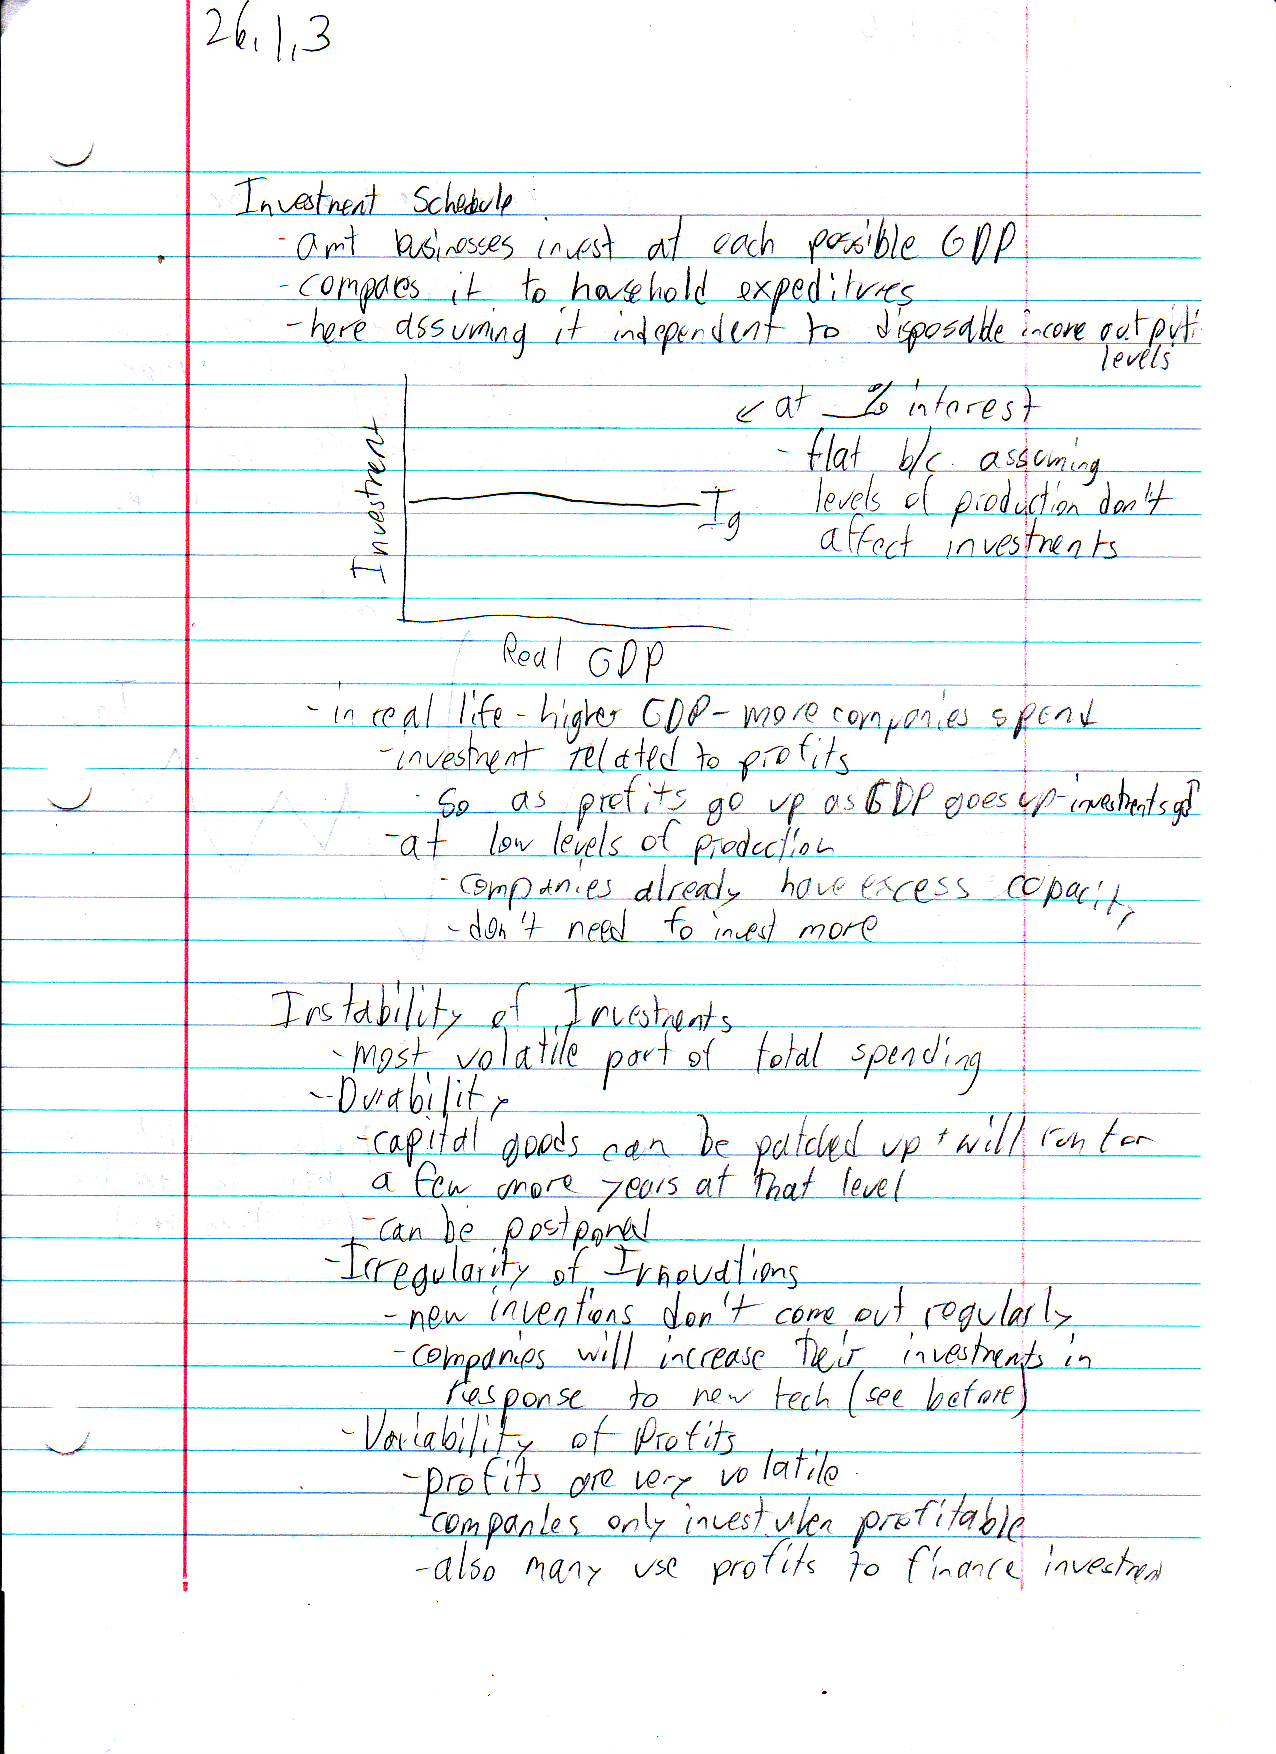 26.1.3
Investment Schedule
- amt businesses invest at each possible GDP
- compares it to household expeditures
- here assuming it independent to disposable income output
levels
↙ at __% interest
- flat b/c assuming
levels of production don't
affect investments
Investment
Ig
Real GDP
- in real life - higher GDP - more companies spend
- investment related to profits
- So as profits go up as GDP goes up - investments go ↑
- at low levels of production
- companies already have excess capacity
- don't need to invest more
Instability of Investments
- most volatile part of total spending
- Durability
- capital goods can be patched up + will run for
a few more years at that level
- can be postponed
- Irregularity of Innovations
- new inventions don't come out regularly
- companies will increase their investments in
response to new tech (see before)
- Variability of Profits
- profits are very volatile
- companies only invest when profitable
- also many use profits to finance investment